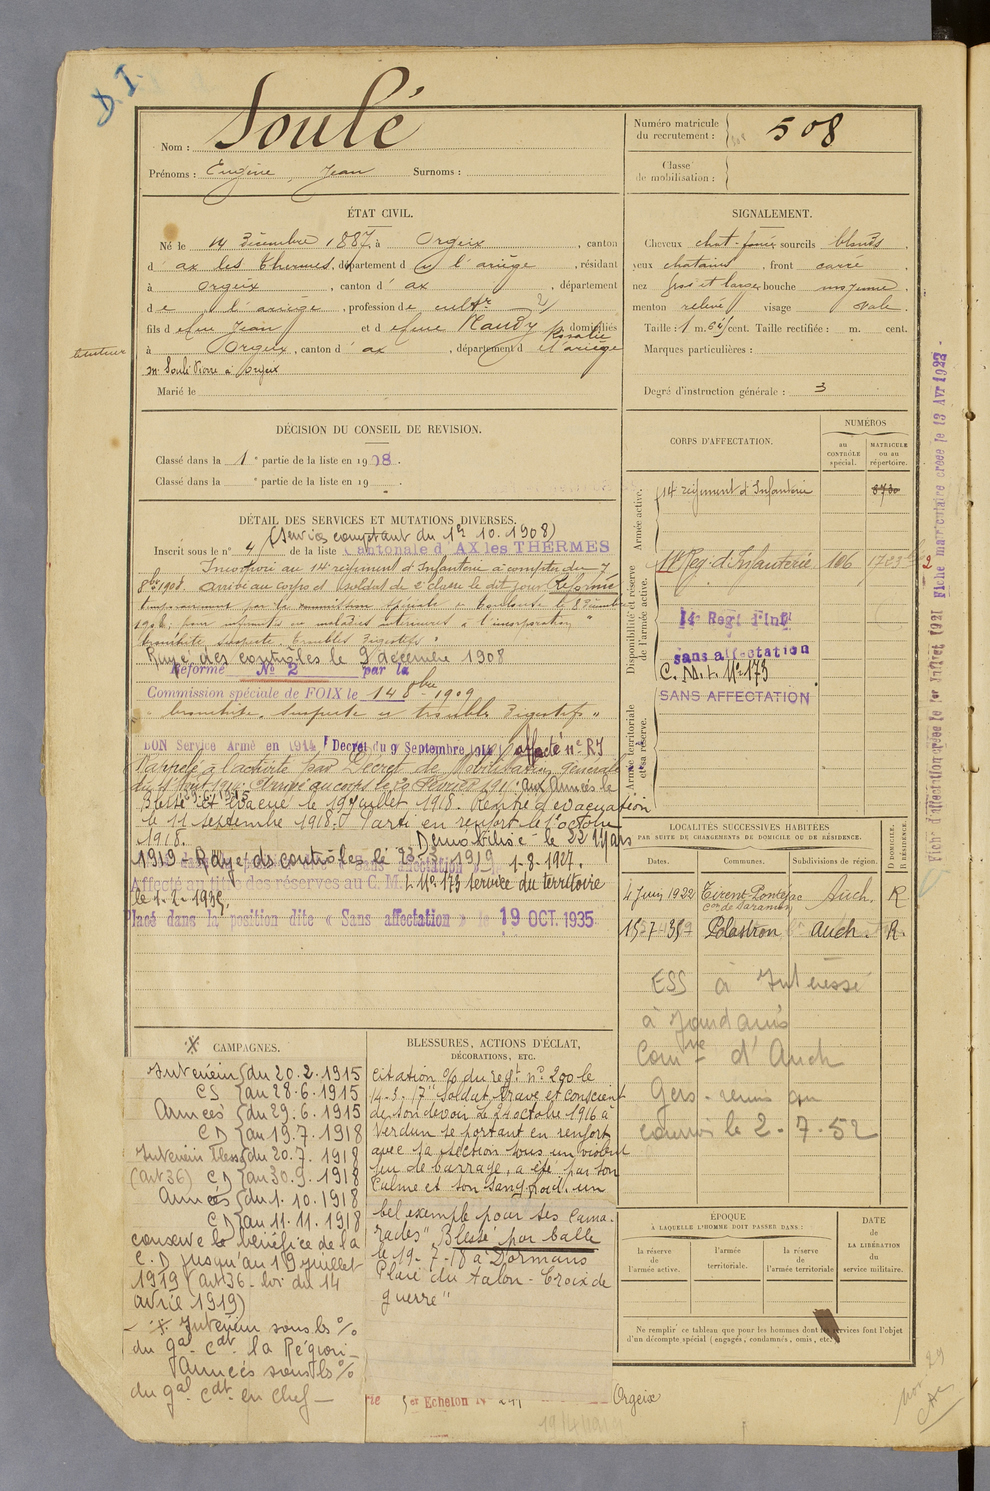 D.I.
Nom : Soulé
Prénoms : Eugène, Jean Surnoms :
Numéro matricule du recrutement : 508
Classe de mobilisation :
ÉTAT CIVIL.
Né le 14 Décembre 1887, à Orgeix, canton
d'ax les thermes, département de l'ariège, résidant
à Orgeix, canton d'ax, département
de l'ariège, profession de cultr
fils d efeu Jean et d efeue Naudy Rosalie domiciliés
à Orgeix, canton d'ax, département de l'ariège
tuteur
Mr Soulé Pierre à Orgeix
Marié le
SIGNALEMENT.
Cheveux chat-foncé sourcils blonds
yeux chatains, front carré
nez gros et large bouche moyenne
menton relevé visage ovale
Taille : 1 m. 64 cent. Taille rectifiée : m. cent.
Marques particulières :
Degré d'instruction générale : 3
DÉCISION DU CONSEIL DE REVISION.
Classé dans la 1e partie de la liste en 1908.
Classé dans la e partie de la liste en 19
DÉTAIL DES SERVICES ET MUTATIONS DIVERSES.
(Services comptant du 1er 10.1908)
Inscrit sous le n° 4 de la liste Cantonale d'AX les THERMES
Incorporé au 14e régiment d'Infanterie à compter du 7
8bre 1908. arrivé au corps et soldat de 2e classe le dit jour Réformé
temporairement par la commission spéciale de Toulouse le 8 Décembre
1908; pour infirmités ou maladies antérieures à l'incorporation
bronchite suspecte, troubles digestifs"
Rayé des contrôles le 9 décembre 1908
Réformé N° 2 par la
Commission spéciale de FOIX le 14 8bre 1909
bronchite suspecte et troubles digestifs"
BON Service Armé en 1914 (Décret du 9 Septembre 1914) affecté 11e RI
Rappelé à l'activité par Décret de Mobilisation Générale
du 1 Août 1914. Arrivé au corps le 20 Février 1915. aux Armées le
29.6.1915
Blessé et évacué le 19 juillet 1918. Rentré d'évacuation
le 11 septembre 1918. Parti en renfort le 1er octobre
1918. Démobilisé le 22 Mars
1919 - Rayé des contrôles le 23.3.1919 1-8-1927.
Affecté au titre des réserves au C.M. L n° 173 service du territoire
le 1-2-1935.
Placé dans la position dite « Sans affectation » le 19 OCT. 1935
CORPS D'AFFECTATION.
NUMÉROS
au CONTRÔLE spécial.
MATRICULE ou au répertoire.
Armée active.
14e régiment d'Infanterie 8730
Disponibilité et réserve de l'armée active.
11e Rég. d'Infanterie 106
14e Regt d'Infie
sans affectation
C. M. L N° 173
SANS AFFECTATION
Armée territoriale et sa réserve.
LOCALITÉS SUCCESSIVES HABITÉES
PAR SUITE DE CHANGEMENTS DE DOMICILE OU DE RÉSIDENCE.
Dates. Communes. Subdivisions de région. D DOMICILE. R RÉSIDENCE.
4 Juin 1922 Tirent-Pontéjac Con de Saramon Auch. R
15-7-35 Polastron Auch. R.
ESS à Intéressé
à Jourdanis
Comne d'Auch
Gers - remis au
courrier le 2-7-52
※ CAMPAGNES.
Intérieur {du 20.2.1915
CS {au 28.6.1915
Armées {du 29.6.1915
CD {au 19.7.1918
Intérieur blessé {du 20.7.1918
(art 36) CD {au 30.9.1918
Armées {du 1.10.1918
CD {au 11.11.1918
conserve le bénéfice de la
C.D jusqu'au 19 juillet
1919 (art 36 - loi du 14
avril 1919)
※ Intérieur sous les o/o
du gal cdt la Région -
Armées sous les o/o
du gal cdt en chef -
BLESSURES, ACTIONS D'ÉCLAT, DÉCORATIONS, ETC.
Citation o/o du régt n° 200 le
14-3-17 "Soldat brave et conscient
de son devoir. Le 24 octobre 1916 à
Verdun se portant en renfort
avec sa section sous un violent
feu de barrage, a été par son
calme et son sang froid, un
bel exemple pour ses cama-
rades" Blessé par balle
le 19-7-18 à Dormans
Plaie du talon - Croix de
guerre"
ÉPOQUE
À LAQUELLE L'HOMME DOIT PASSER DANS :
la réserve de l'armée active.
l'armée territoriale.
la réserve de l'armée territoriale
DATE de LA LIBÉRATION du service militaire.
Ne remplir ce tableau que pour les hommes dont les services font l'objet
d'un décompte spécial (engagés, condamnés, omis, etc.)
Orgeix
Fiche d'affectation créée le 1er Juillet 1921 Fiche matriculaire créée le 13 Avr 1922 -